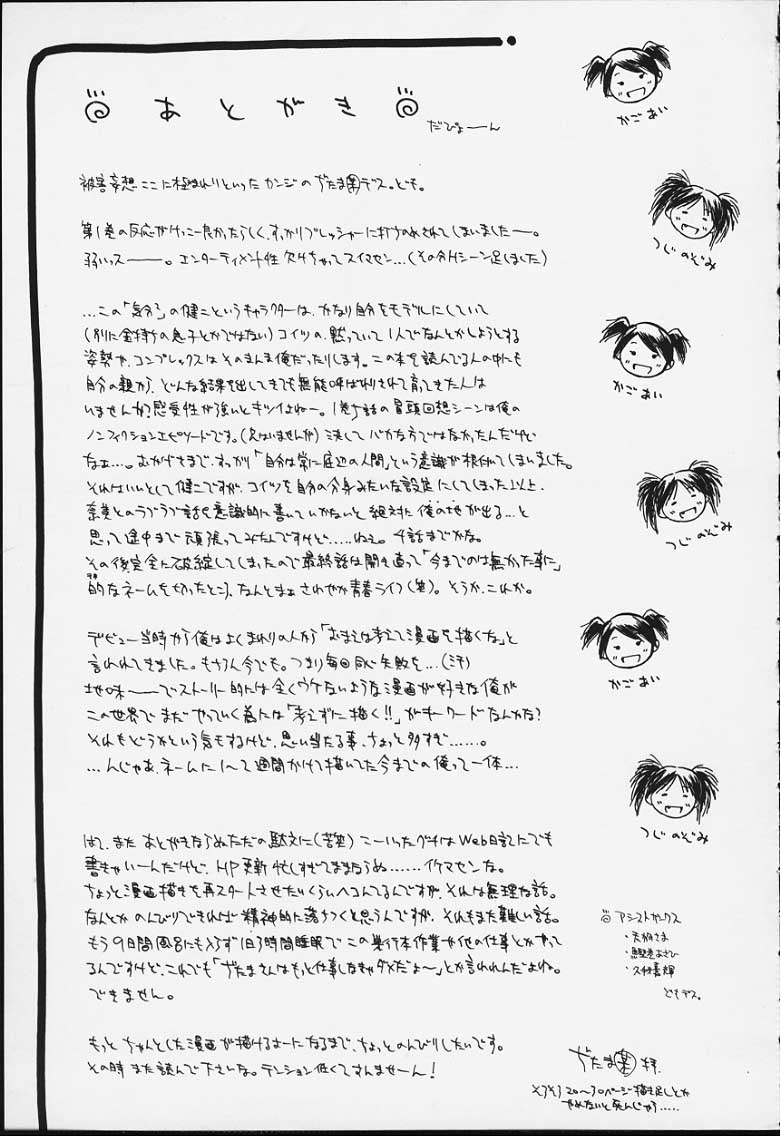 あとがき
だぴょーん
被害妄想ここに極まれりといったカンジのぢたま㊚デス。ども。
第1巻の反応がけっこー良かったらしく、すっかりプレッシャーに打ちのめされてしまいましたー。
弱いっスー。エンターティメント性欠けちゃってスイマセン…(その分Hシーン足しました)
…この「」の健二というキャラクターは、かなり自分をモデルにしていて
(別に金持ちの息子とかではない)コイツの、黙っていて1人でなんとかしようとする
姿勢や、コンプレックスはそのまんま俺だったりします。この本を読んでる人の中にも
自分の親から、どんな結果を出してきても無能呼ばわりされて育ってきた人は
いませんか?感受性が強いとキツイよねー。1巻1話の冒頭回想シーンは俺の
ノンフィクションエピソードです。(犬はいませんが)決してバカな方ではなかったんだけど
なぁ…。おかげさまで、すっかり「自分は常に底辺の人間」という意識が根付いてしまいました。
それはいいとして健二ですが、コイツを自分の分身みたいな設定にしてしまった以上、
奈美とのラブラブ話を意識的に書いていかないと絶対に俺の地が出る…と
思って途中まで頑張ってみたんですけど……ねぇ。4話までかな。
その後完全に破綻してしまったので最終話は開き直って「今までのは無かった事に」
的なネームを切ったところ、なんとまぁさわやか青春ライフ(笑)。そうか、これか。
デビュー当時から俺はよくまわりの人から「おまえは考えて漫画を描くな」と
言われてきました。もちろん今でも。つまり毎回同じ失敗を…(汗)
地味ーでストーリー的には全くウケないような漫画が好きな俺が
この世界でまだやっていく為には「考えずに描く!!」がキーワードなんかな?
それもどうかという気もするけど、思い当たる事、ちょっと多すぎ……。
…んじゃあ、ネームに1〜2週間かけて描いてた今までの俺って一体…
はて、またあとがきならぬただの駄文に(苦笑)こーいったグチはWeb日記にでも
書きゃいーんだけど、HP更新忙しすぎてままならぬ……イケマセンな。
ちょっと漫画描きを再スタートさせたいくらいヘコんでるんですが、それは無理な話。
なんとかのんびりできれば精神的に落ちつくと思うんですが、それもまた難しい話。
もう9日間風呂にも入らず1日3時間睡眠でこの単行本作業や他の仕事とかやって
るんですけど、これでも「ぢたまさんはもっと仕事しなきゃダメだよ〜」とか言われんだよね。
できません。
もっとちゃんとした漫画が描けるよーになるまで、ちょっとのんびりしたいです。
その時また読んで下さいな。テンション低くてすんませーん!
かご あい
つじ のぞみ
かご あい
つじ のぞみ
かご あい
つじ のぞみ
アシストサークス
・さま
・よさひ
・久村善輝
どもデス。
ぢたま㊚拝.
そろそろ20〜30ページ描き足しとか
やめないと死んじゃう……